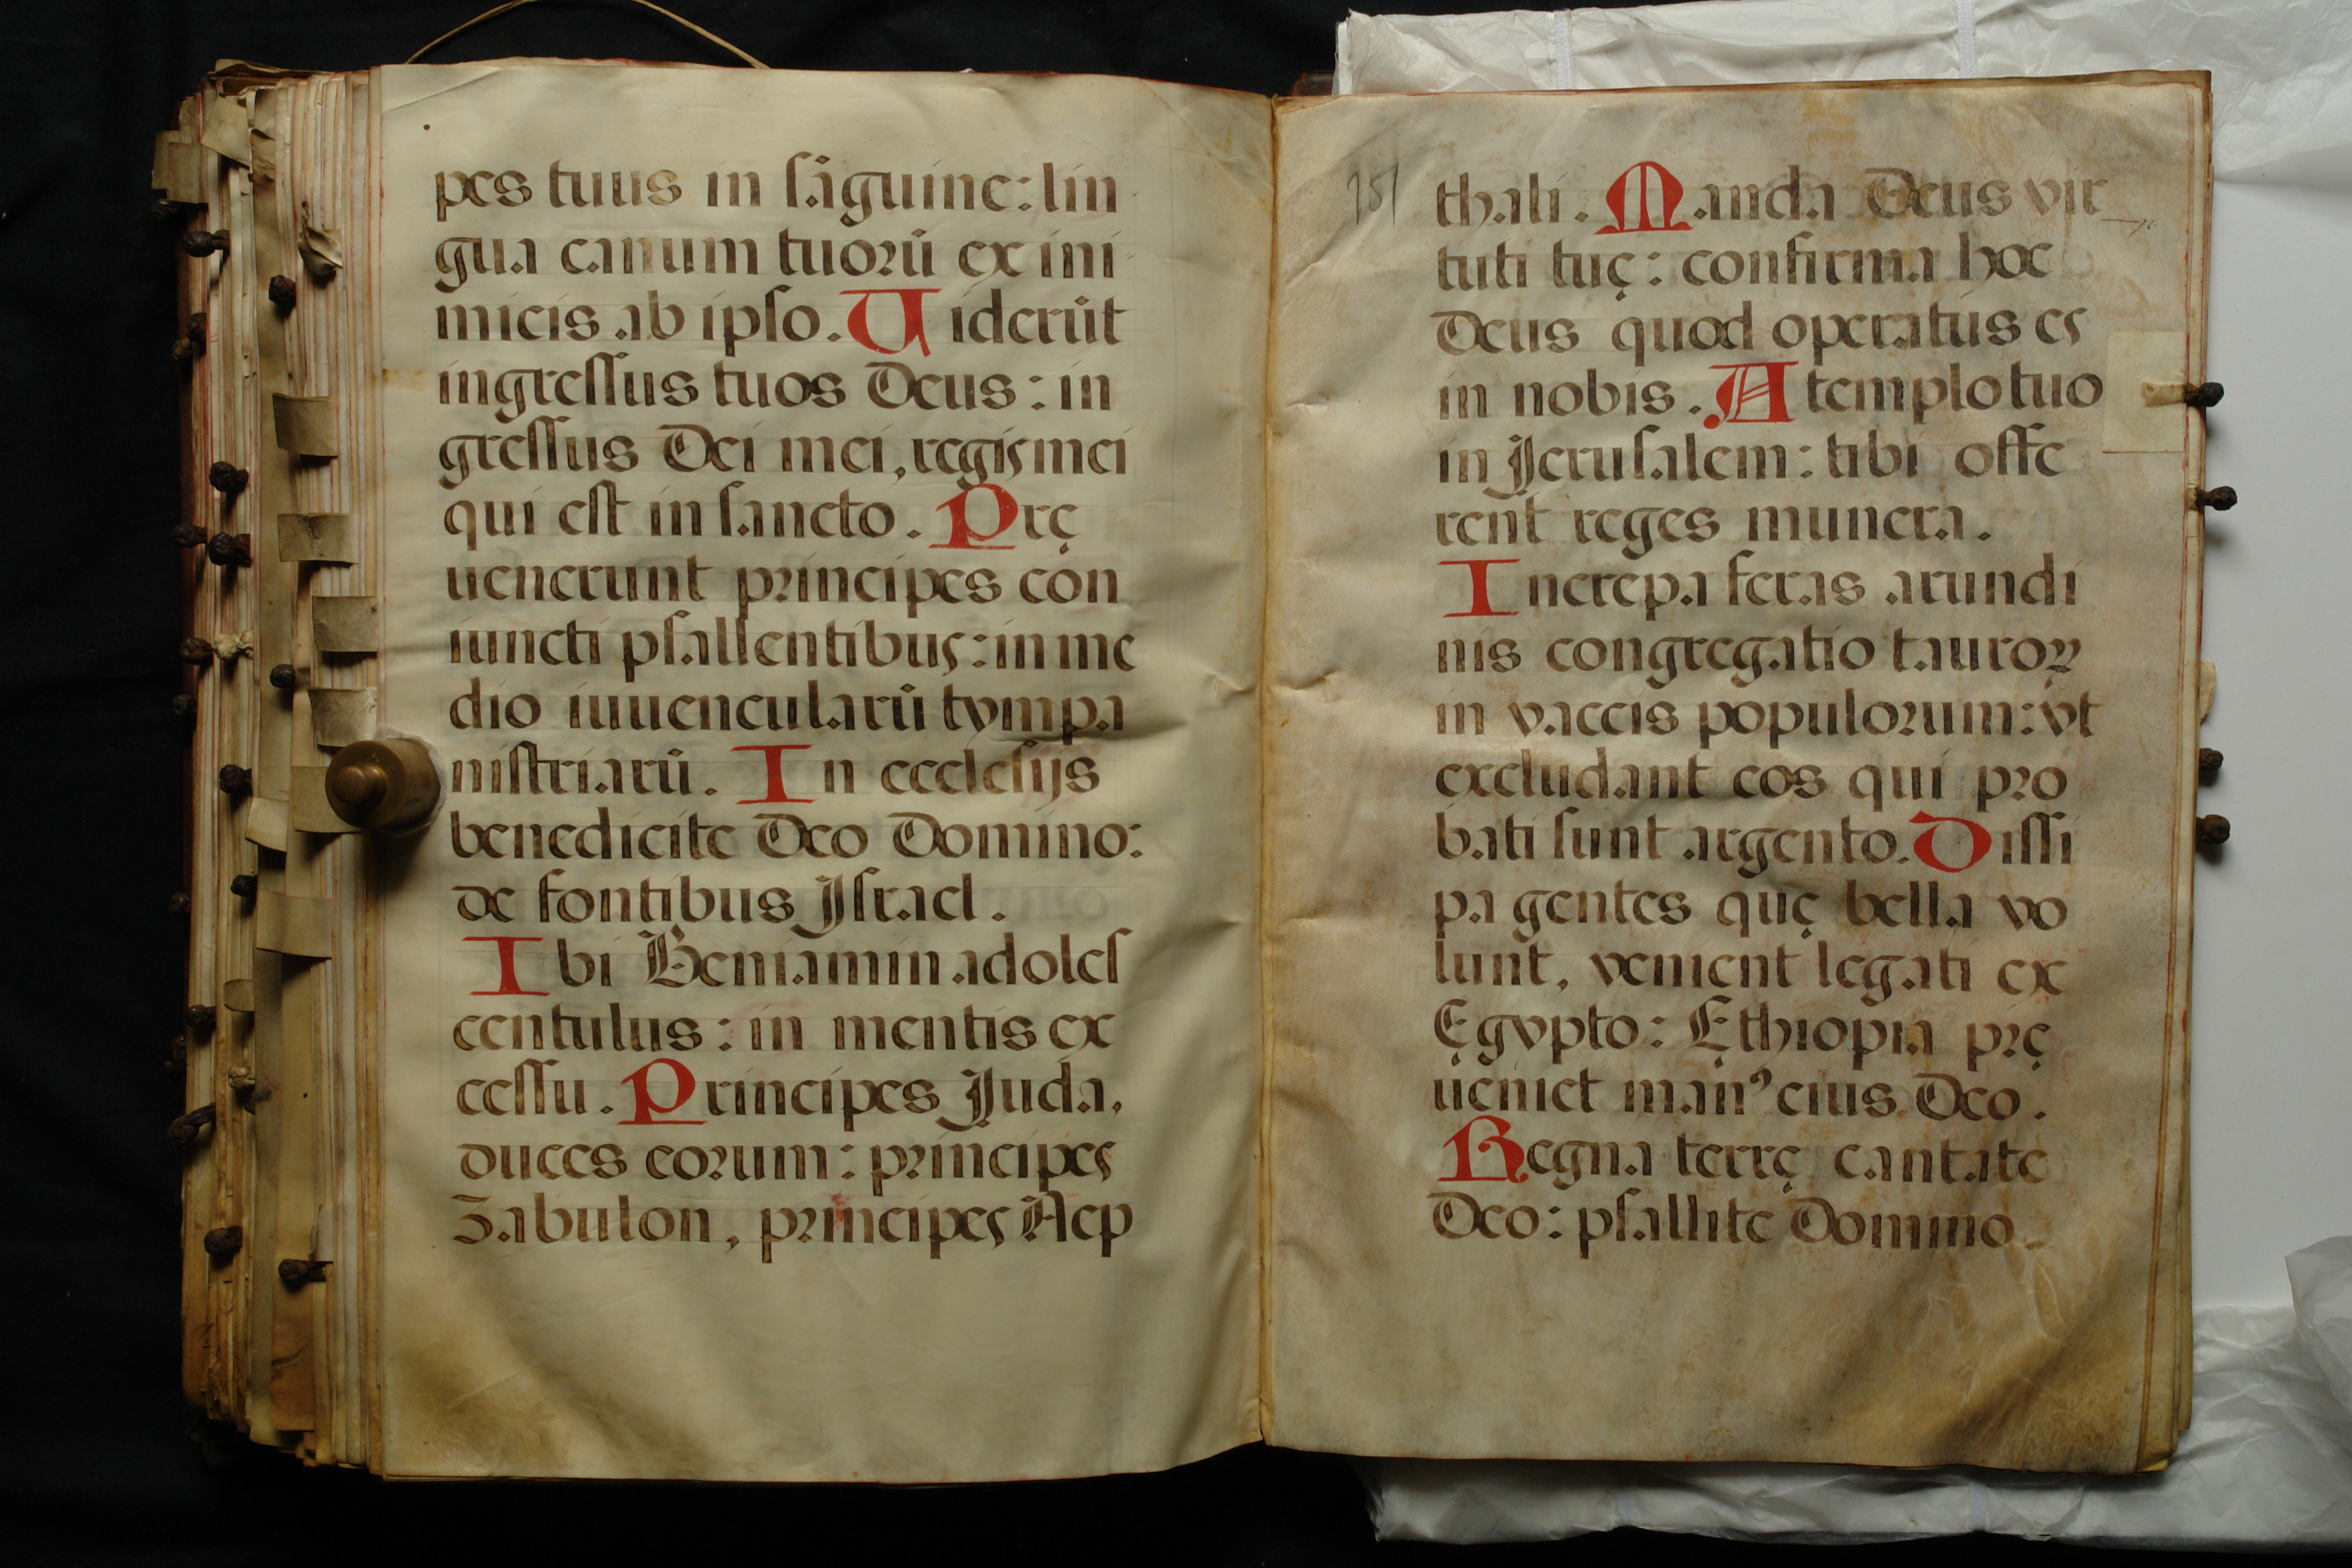 pes tuus in sãguine: lin
gua canum tuorũ ex ini
micis ab ipso. Uiderũt
ingressus tuos Deus: in
gressus Dei mei, regis mei
qui est in sancto. Prę
uenerunt principes con
iuncti psallentibus: in me
dio iuuencularũ tympa
nistriarũ. In ecclesijs
benedicite Deo Domino:
de fontibus Israel.
Ibi Beniamin adoles
centulus: in mentis ex
cessu. Principes Juda,
duces eorum: principes
Zabulon, principes Nep
151
thali. Manda Deus vir
tuti tuę: confirma hoc
Deus quod operatus es
in nobis. A templo tuo
in Jerusalem: tibi offe
rent reges munera.
Increpa feras arundi
nis congregatio tauroꝝ
in vaccis populorum: vt
excludant eos qui pro
bati sunt argento. Dissi
pa gentes quę bella vo
lunt, venient legati ex
Ęgypto: Ęthiopia prę
ueniet manꝰ eius Deo.
Regna terrę cantate
Deo: psallite Domino